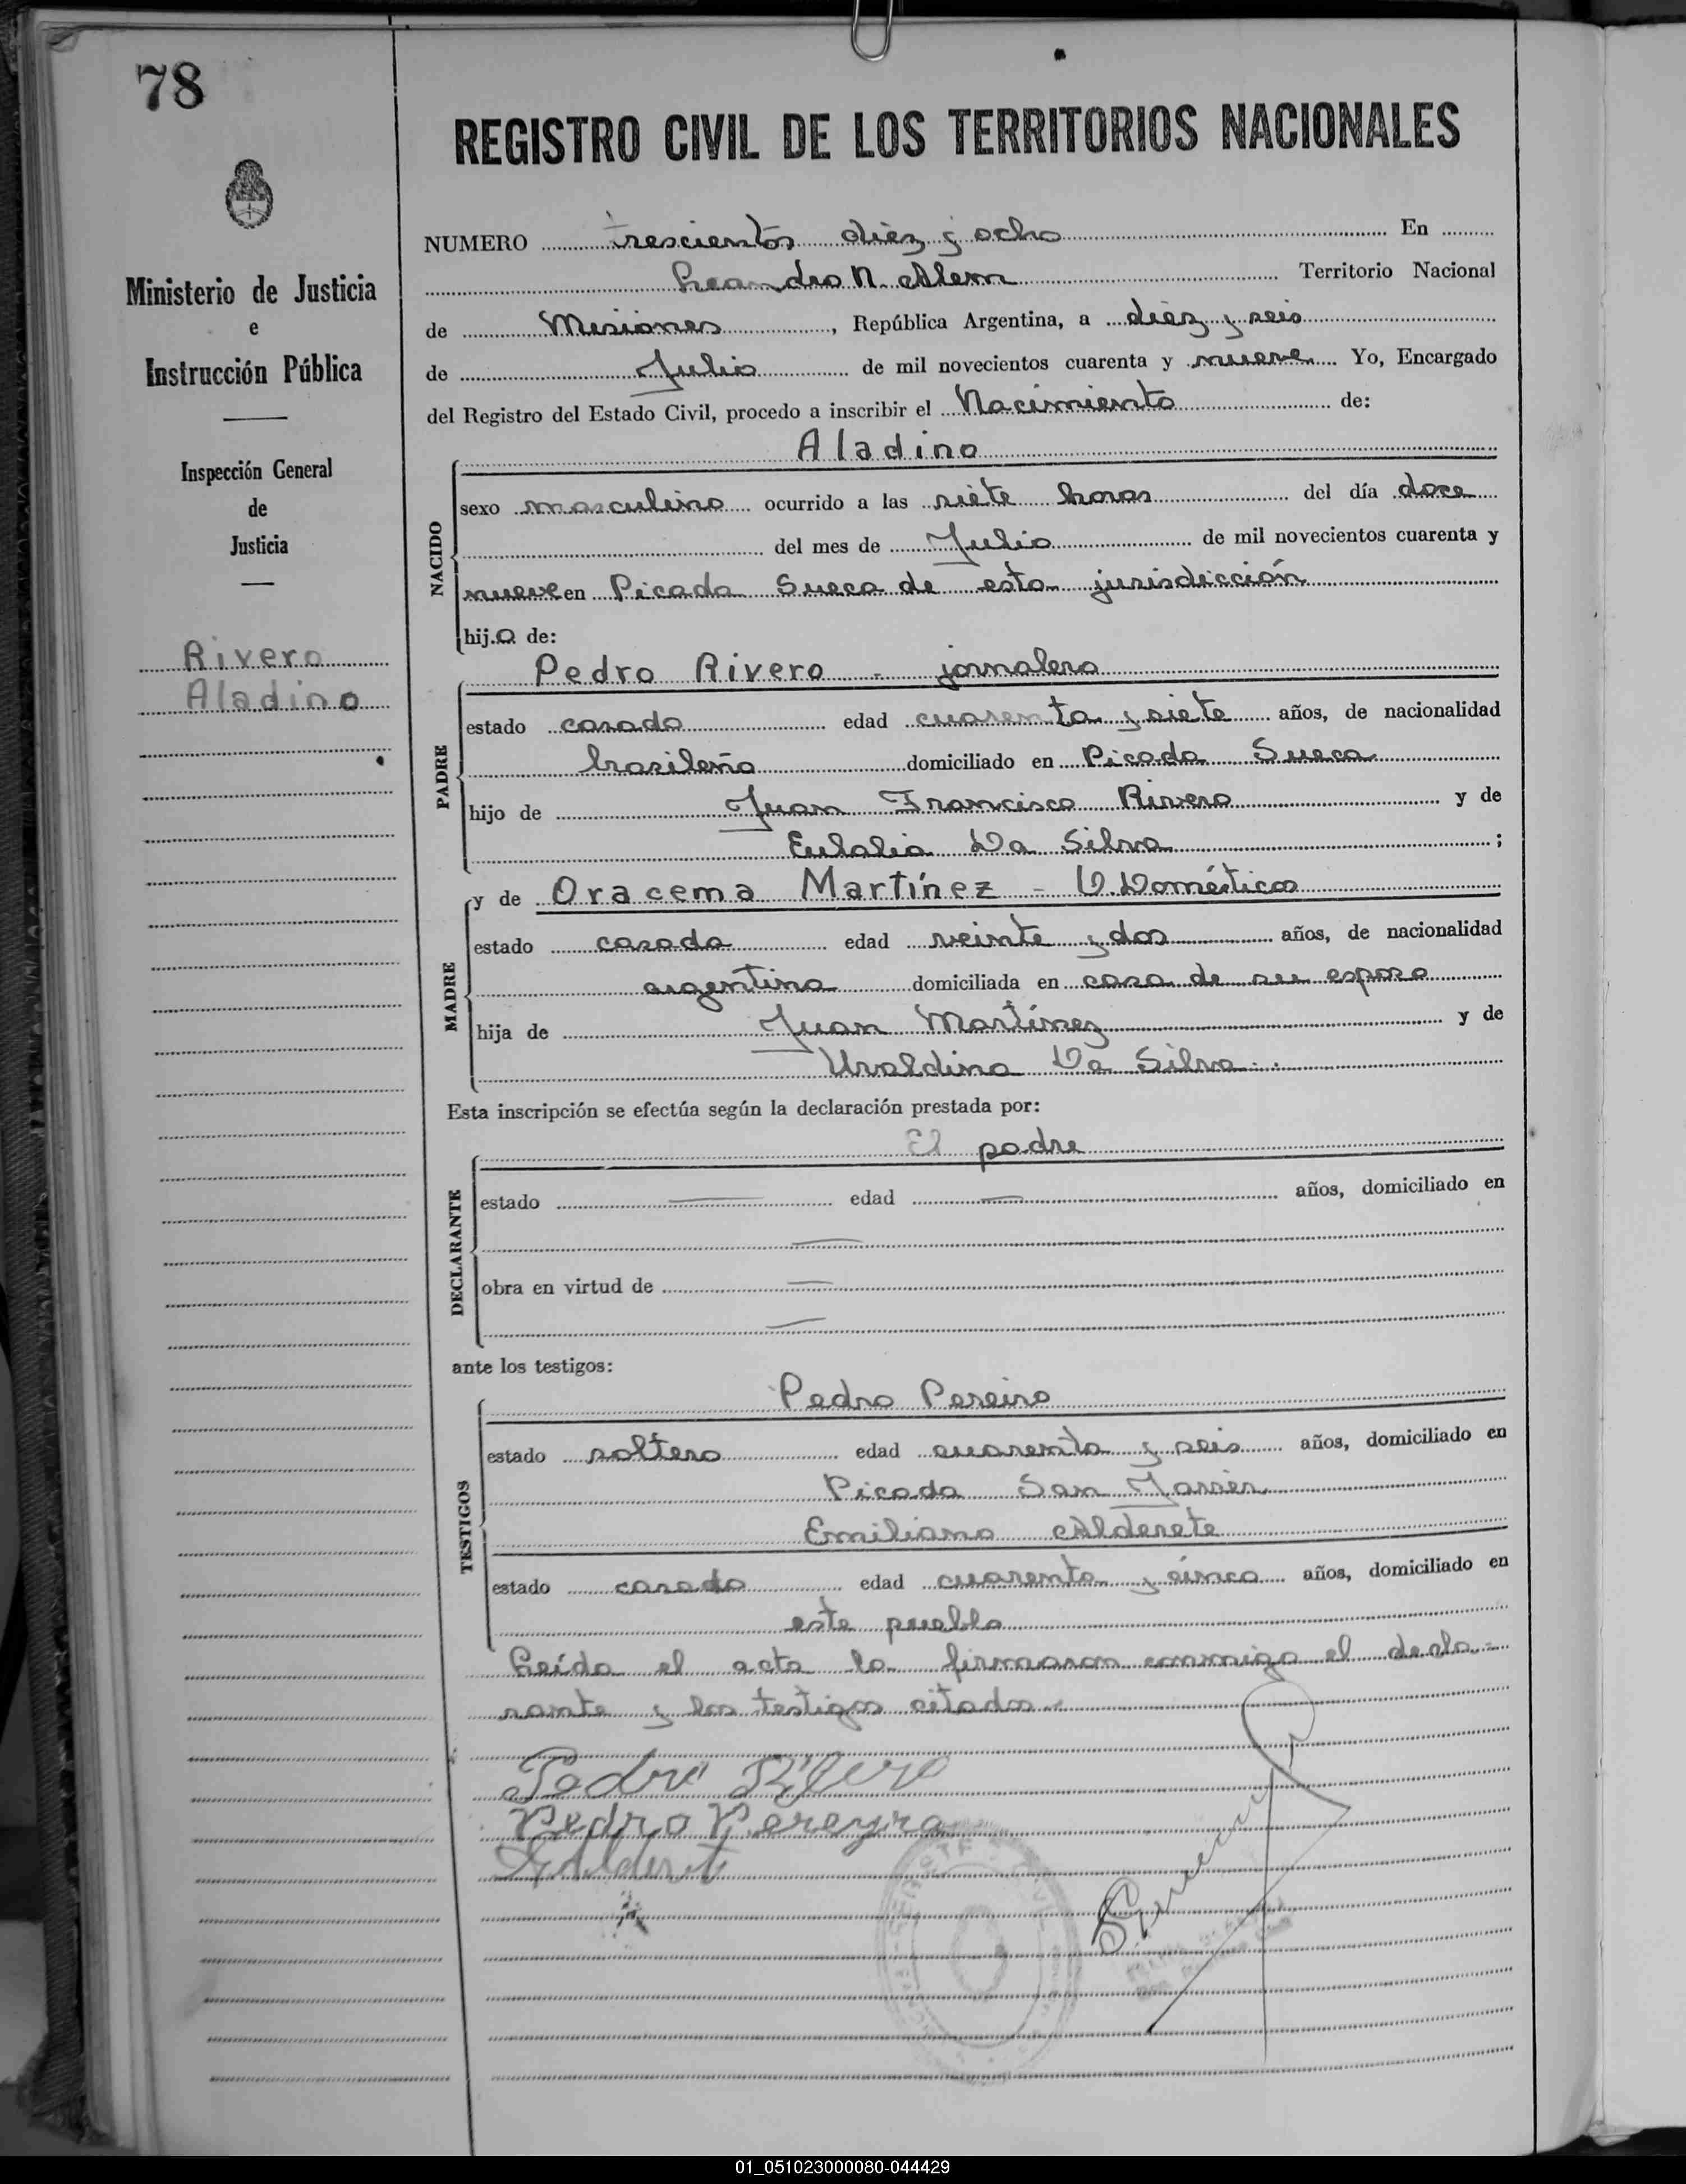 78
REGISTRO CIVIL DE LOS TERRITORIOS NACIONALES
Ministerio de Justicia
e
Instrucción Pública
Inspección General
de
Justicia
Rivero
Aladino
NUMERO trescientos diez y ocho En
Leandro N. Alem Territorio Nacional
de Misiones, República Argentina, a diez y seis
de Julio de mil novecientos cuarenta y nueve Yo, Encargado
del Registro del Estado Civil, procedo a inscribir el Nacimiento de:
Aladino
NACIDO
sexo masculino ocurrido a las siete horas del día doce
del mes de Julio de mil novecientos cuarenta y
nueve en Picada Sueca de esta jurisdicción
hijo de:
Pedro Rivero - jornalero
PADRE
estado casado edad cuarenta y siete años, de nacionalidad
brasileña domiciliado en Picada Sueca
hijo de Juan Francisco Rivero y de
Eulalia Da Silva ;
y de Oracema Martínez - Q. Domésticos
MADRE
estado casada edad veinte y dos años, de nacionalidad
argentina domiciliada en casa de su esposo
hija de Juan Martínez y de
Uvaldina Da Silva
Esta inscripción se efectúa según la declaración prestada por:
El padre
DECLARANTE
estado — edad — años, domiciliado en
—
obra en virtud de —
—
ante los testigos:
Pedro Pereira
TESTIGOS
estado soltero edad cuarenta y seis años, domiciliado en
Picada San Javier
Emiliano Alderete
estado casado edad cuarenta y cinco años, domiciliado en
este pueblo
Leída el acta la firmaron conmigo el decla-
rante y los testigos citados.-
Pedro Rivero
Pedro Pereyra
01_051023000080-044429